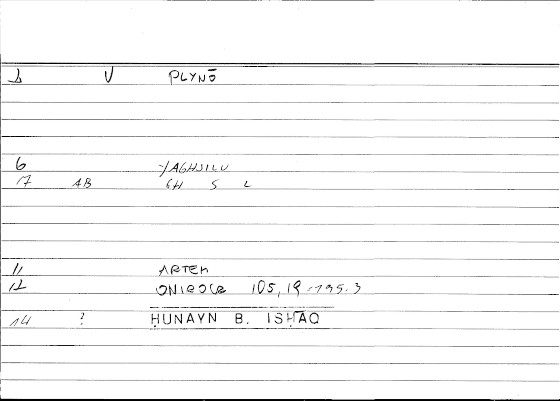 1 V PLYNŌ
6 YAGHSILU
17 AB GH S L
11 ARTEM
12 ONIROCR 105,19-195.3
14 ? ḤUNAYN B. ISḤĀQ